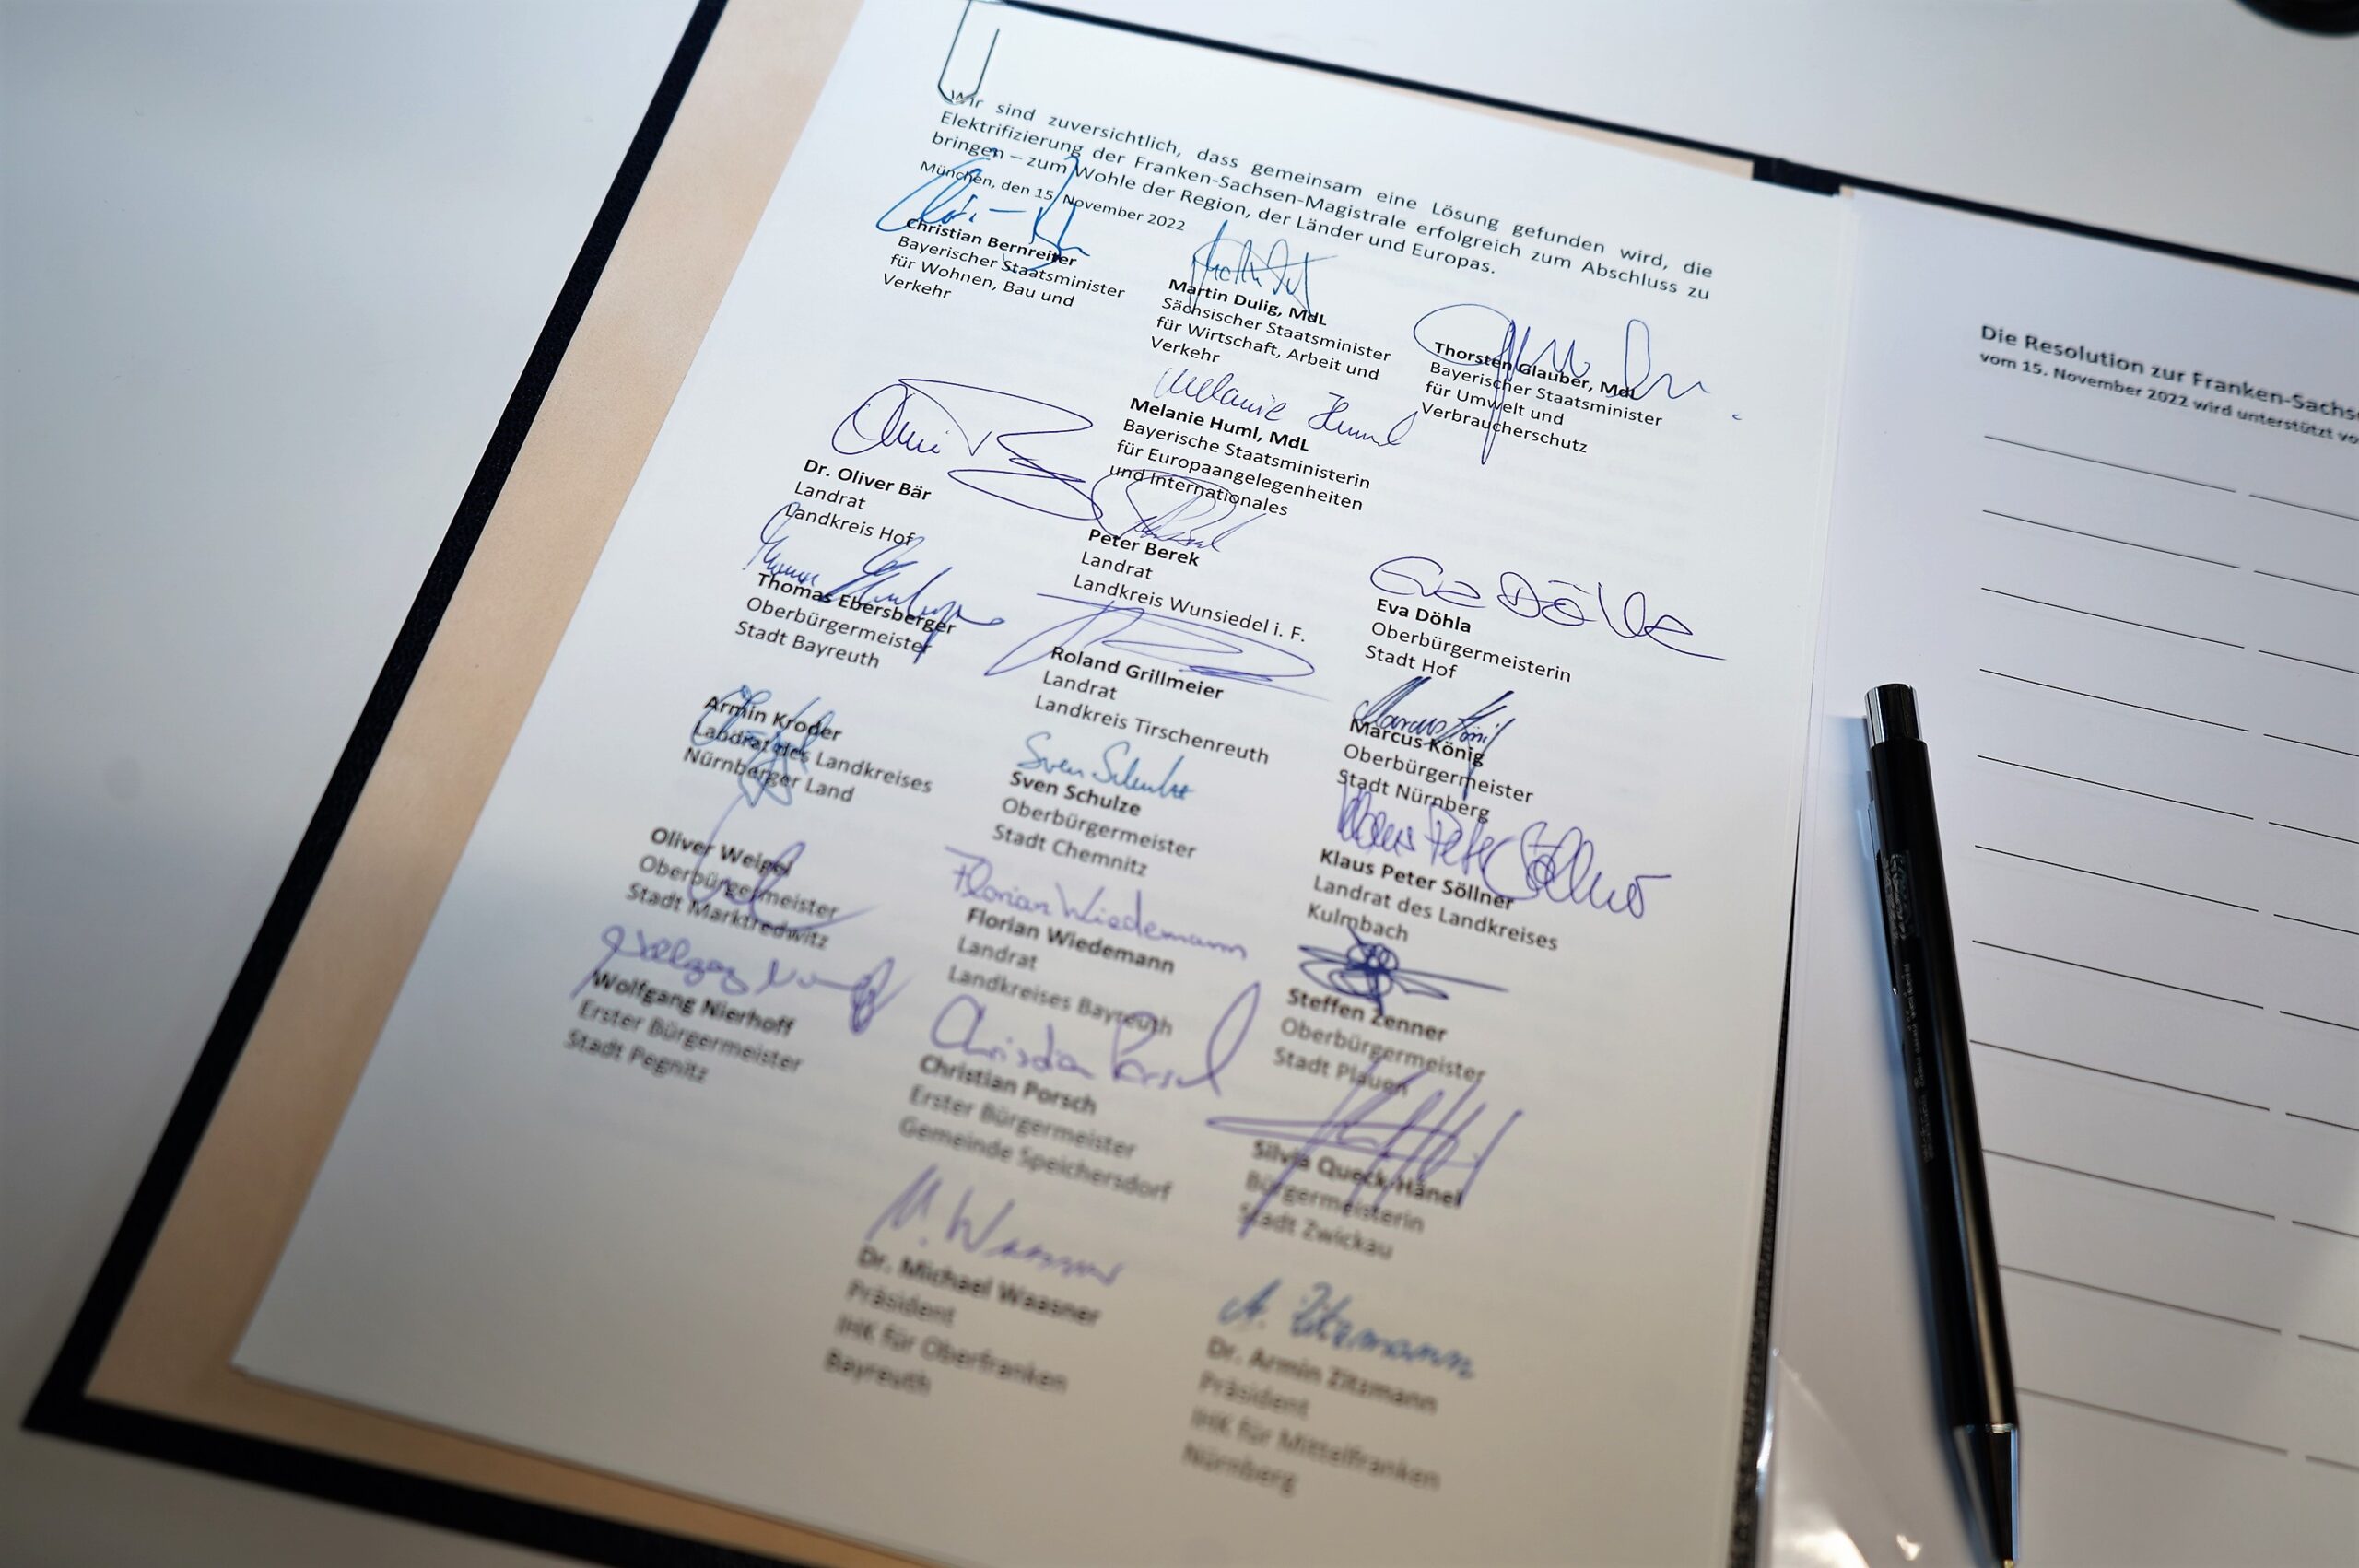 Wir sind zuversichtlich, dass gemeinsam eine Lösung gefunden wird, die
Elektrifizierung der Franken-Sachsen-Magistrale erfolgreich zum Abschluss zu
bringen – zum Wohle der Region, der Länder und Europas.
München, den 15. November 2022
Christian Bernreiter
Bayerischer Staatsminister
für Wohnen, Bau und
Verkehr
Martin Dulig, MdL
Sächsischer Staatsminister
für Wirtschaft, Arbeit und
Verkehr
Thorsten Glauber, MdL
Bayerischer Staatsminister
für Umwelt und
Verbraucherschutz
Melanie Huml
Melanie Huml, MdL
Bayerische Staatsministerin
für Europaangelegenheiten
und Internationales
Dr. Oliver Bär
Landrat
Landkreis Hof
Peter Berek
Landrat
Landkreis Wunsiedel i. F.
Eva Döhla
Eva Döhla
Oberbürgermeisterin
Stadt Hof
Thomas Ebersberger
Oberbürgermeister
Stadt Bayreuth
Roland Grillmeier
Landrat
Landkreis Tirschenreuth
Marcus König
Marcus König
Oberbürgermeister
Stadt Nürnberg
Armin Kroder
Landrat des Landkreises
Nürnberger Land
Sven Schulze
Sven Schulze
Oberbürgermeister
Stadt Chemnitz
Klaus Peter Söllner
Klaus Peter Söllner
Landrat des Landkreises
Kulmbach
Oliver Weigel
Oberbürgermeister
Stadt Marktredwitz
Florian Wiedemann
Florian Wiedemann
Landrat
Landkreises Bayreuth
Steffen Zenner
Oberbürgermeister
Stadt Plauen
Wolfgang Nierhoff
Erster Bürgermeister
Stadt Pegnitz
Christian Porsch
Christian Porsch
Erster Bürgermeister
Gemeinde Speichersdorf
Silvia Queck-Hänel
Bürgermeisterin
Stadt Zwickau
M. Waasner
Dr. Michael Waasner
Präsident
IHK für Oberfranken
Bayreuth
A. Zitzmann
Dr. Armin Zitzmann
Präsident
IHK für Mittelfranken
Nürnberg
Die Resolution zur Franken-Sachs
vom 15. November 2022 wird unterstützt vo